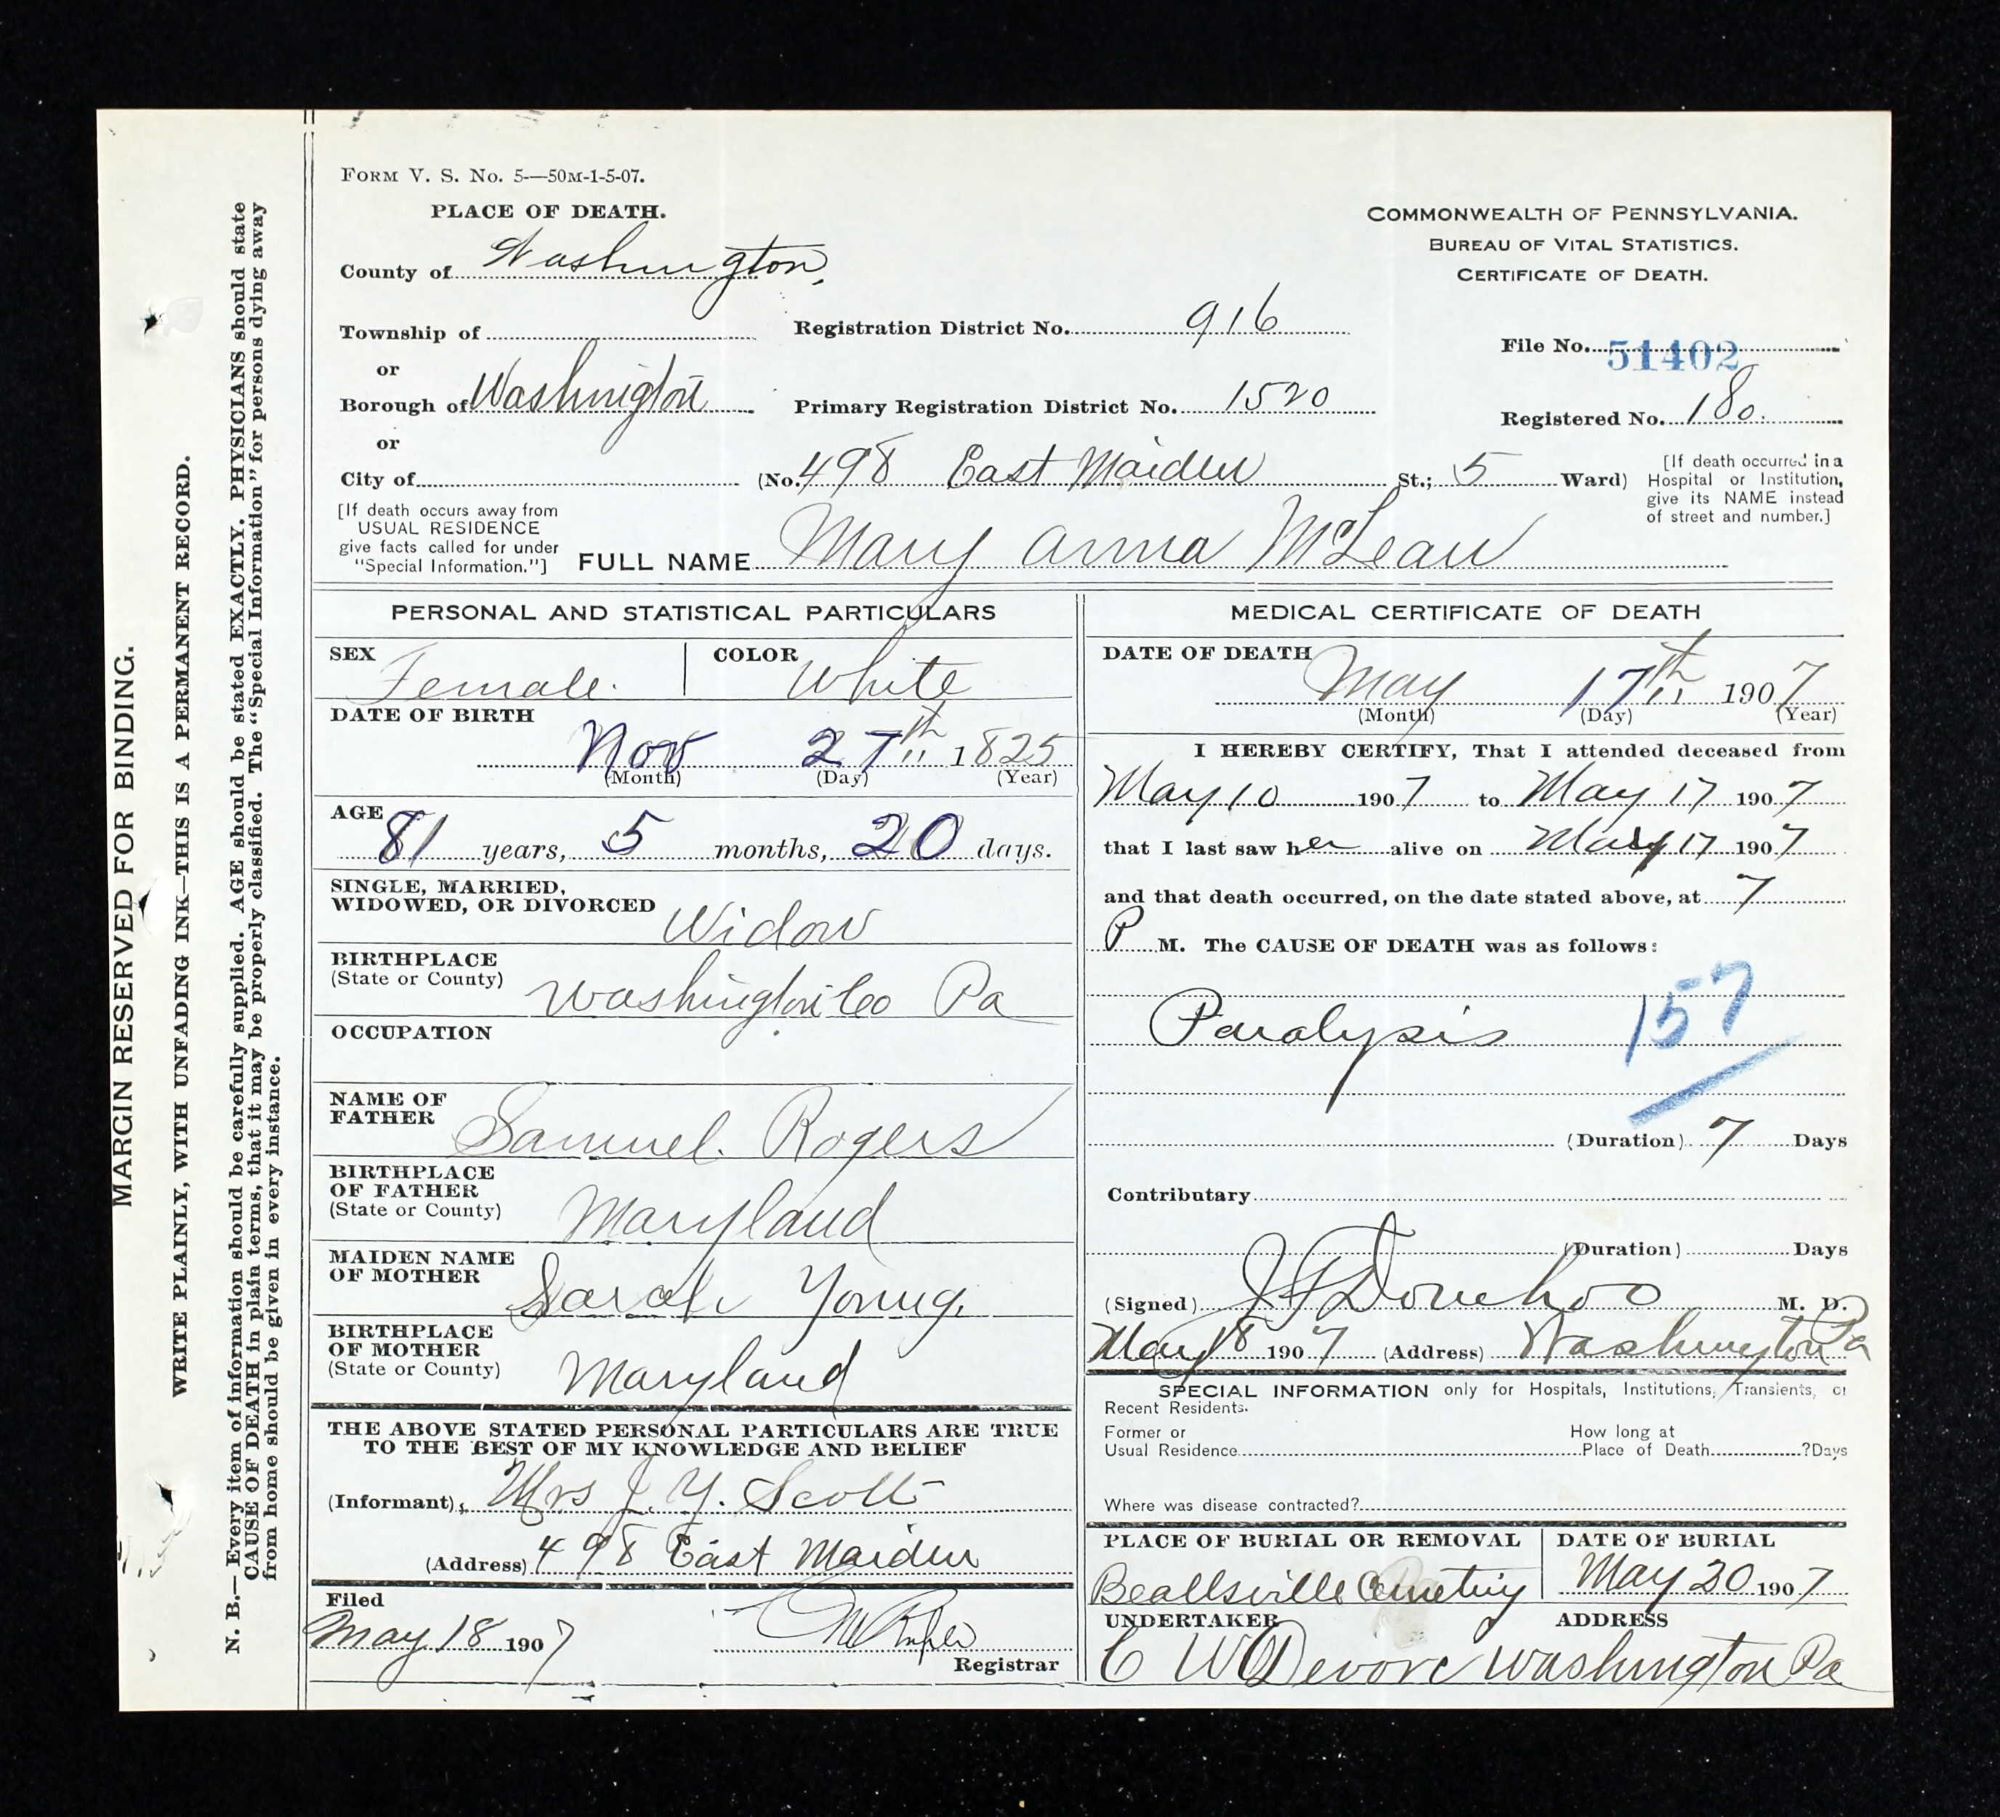 FORM V. S. No. 5—50M-1-5-07.
PLACE OF DEATH.
COMMONWEALTH OF PENNSYLVANIA.
BUREAU OF VITAL STATISTICS.
CERTIFICATE OF DEATH.
County of Washington,
Township of
Registration District No. 916
File No. 51402
or
Borough of Washington
Primary Registration District No. 1520
Registered No. 180.
or
City of
(No. 498 East Maiden St.; 5 Ward)
[If death occurred in a
Hospital or Institution,
give its NAME instead
of street and number.]
[If death occurs away from
USUAL RESIDENCE
give facts called for under
"Special Information."]
FULL NAME Mary Anna McLean
PERSONAL AND STATISTICAL PARTICULARS
SEX Female.
COLOR White
DATE OF BIRTH
Nov 27th 1825
(Month) (Day) (Year)
AGE
81 years, 5 months, 20 days.
SINGLE, MARRIED,
WIDOWED, OR DIVORCED Widow
BIRTHPLACE
(State or County) Washington Co Pa
OCCUPATION
NAME OF
FATHER Samuel Rogers
BIRTHPLACE
OF FATHER
(State or County) Maryland
MAIDEN NAME
OF MOTHER Sarah Young.
BIRTHPLACE
OF MOTHER
(State or County) Maryland
THE ABOVE STATED PERSONAL PARTICULARS ARE TRUE
TO THE BEST OF MY KNOWLEDGE AND BELIEF
(Informant) Mrs J. Y. Scott
(Address) 498 East Maiden
Filed
May 18 1907
Registrar
MEDICAL CERTIFICATE OF DEATH
DATE OF DEATH
May 17th 1907
(Month) (Day) (Year)
I HEREBY CERTIFY, That I attended deceased from
May 10 1907 to May 17 1907
that I last saw her alive on May 17 1907
and that death occurred, on the date stated above, at 7
P M. The CAUSE OF DEATH was as follows:
Paralysis 157
(Duration) 7 Days
Contributary
(Duration) Days
(Signed) J F Donehoo M. D.
May 18 1907 (Address) Washington Pa
SPECIAL INFORMATION only for Hospitals, Institutions, Transients, or
Recent Residents.
Former or
Usual Residence
How long at
Place of Death ? Days
Where was disease contracted?
PLACE OF BURIAL OR REMOVAL
Beallsville Cemetery
DATE OF BURIAL
May 20 1907
UNDERTAKER
C W Devore
ADDRESS
Washington Pa
MARGIN RESERVED FOR BINDING.
WRITE PLAINLY, WITH UNFADING INK—THIS IS A PERMANENT RECORD.
N. B.—Every item of information should be carefully supplied. AGE should be stated EXACTLY. PHYSICIANS should state
CAUSE OF DEATH in plain terms, that it may be properly classified. The "Special Information" for persons dying away
from home should be given in every instance.